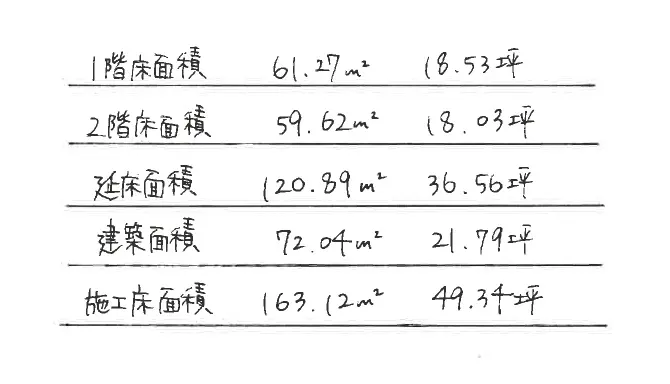 1階床面積 61.27m² 18.53坪
2階床面積 59.62m² 18.03坪
延床面積 120.89m² 36.56坪
建築面積 72.04m² 21.79坪
施工床面積 163.12m² 49.34坪